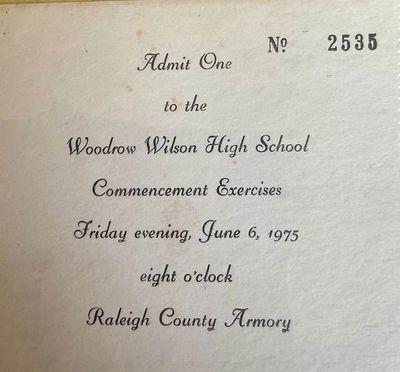 Nº 2535
Admit One
to the
Woodrow Wilson High School
Commencement Exercises
Friday evening, June 6, 1975
eight o'clock
Raleigh County Armory